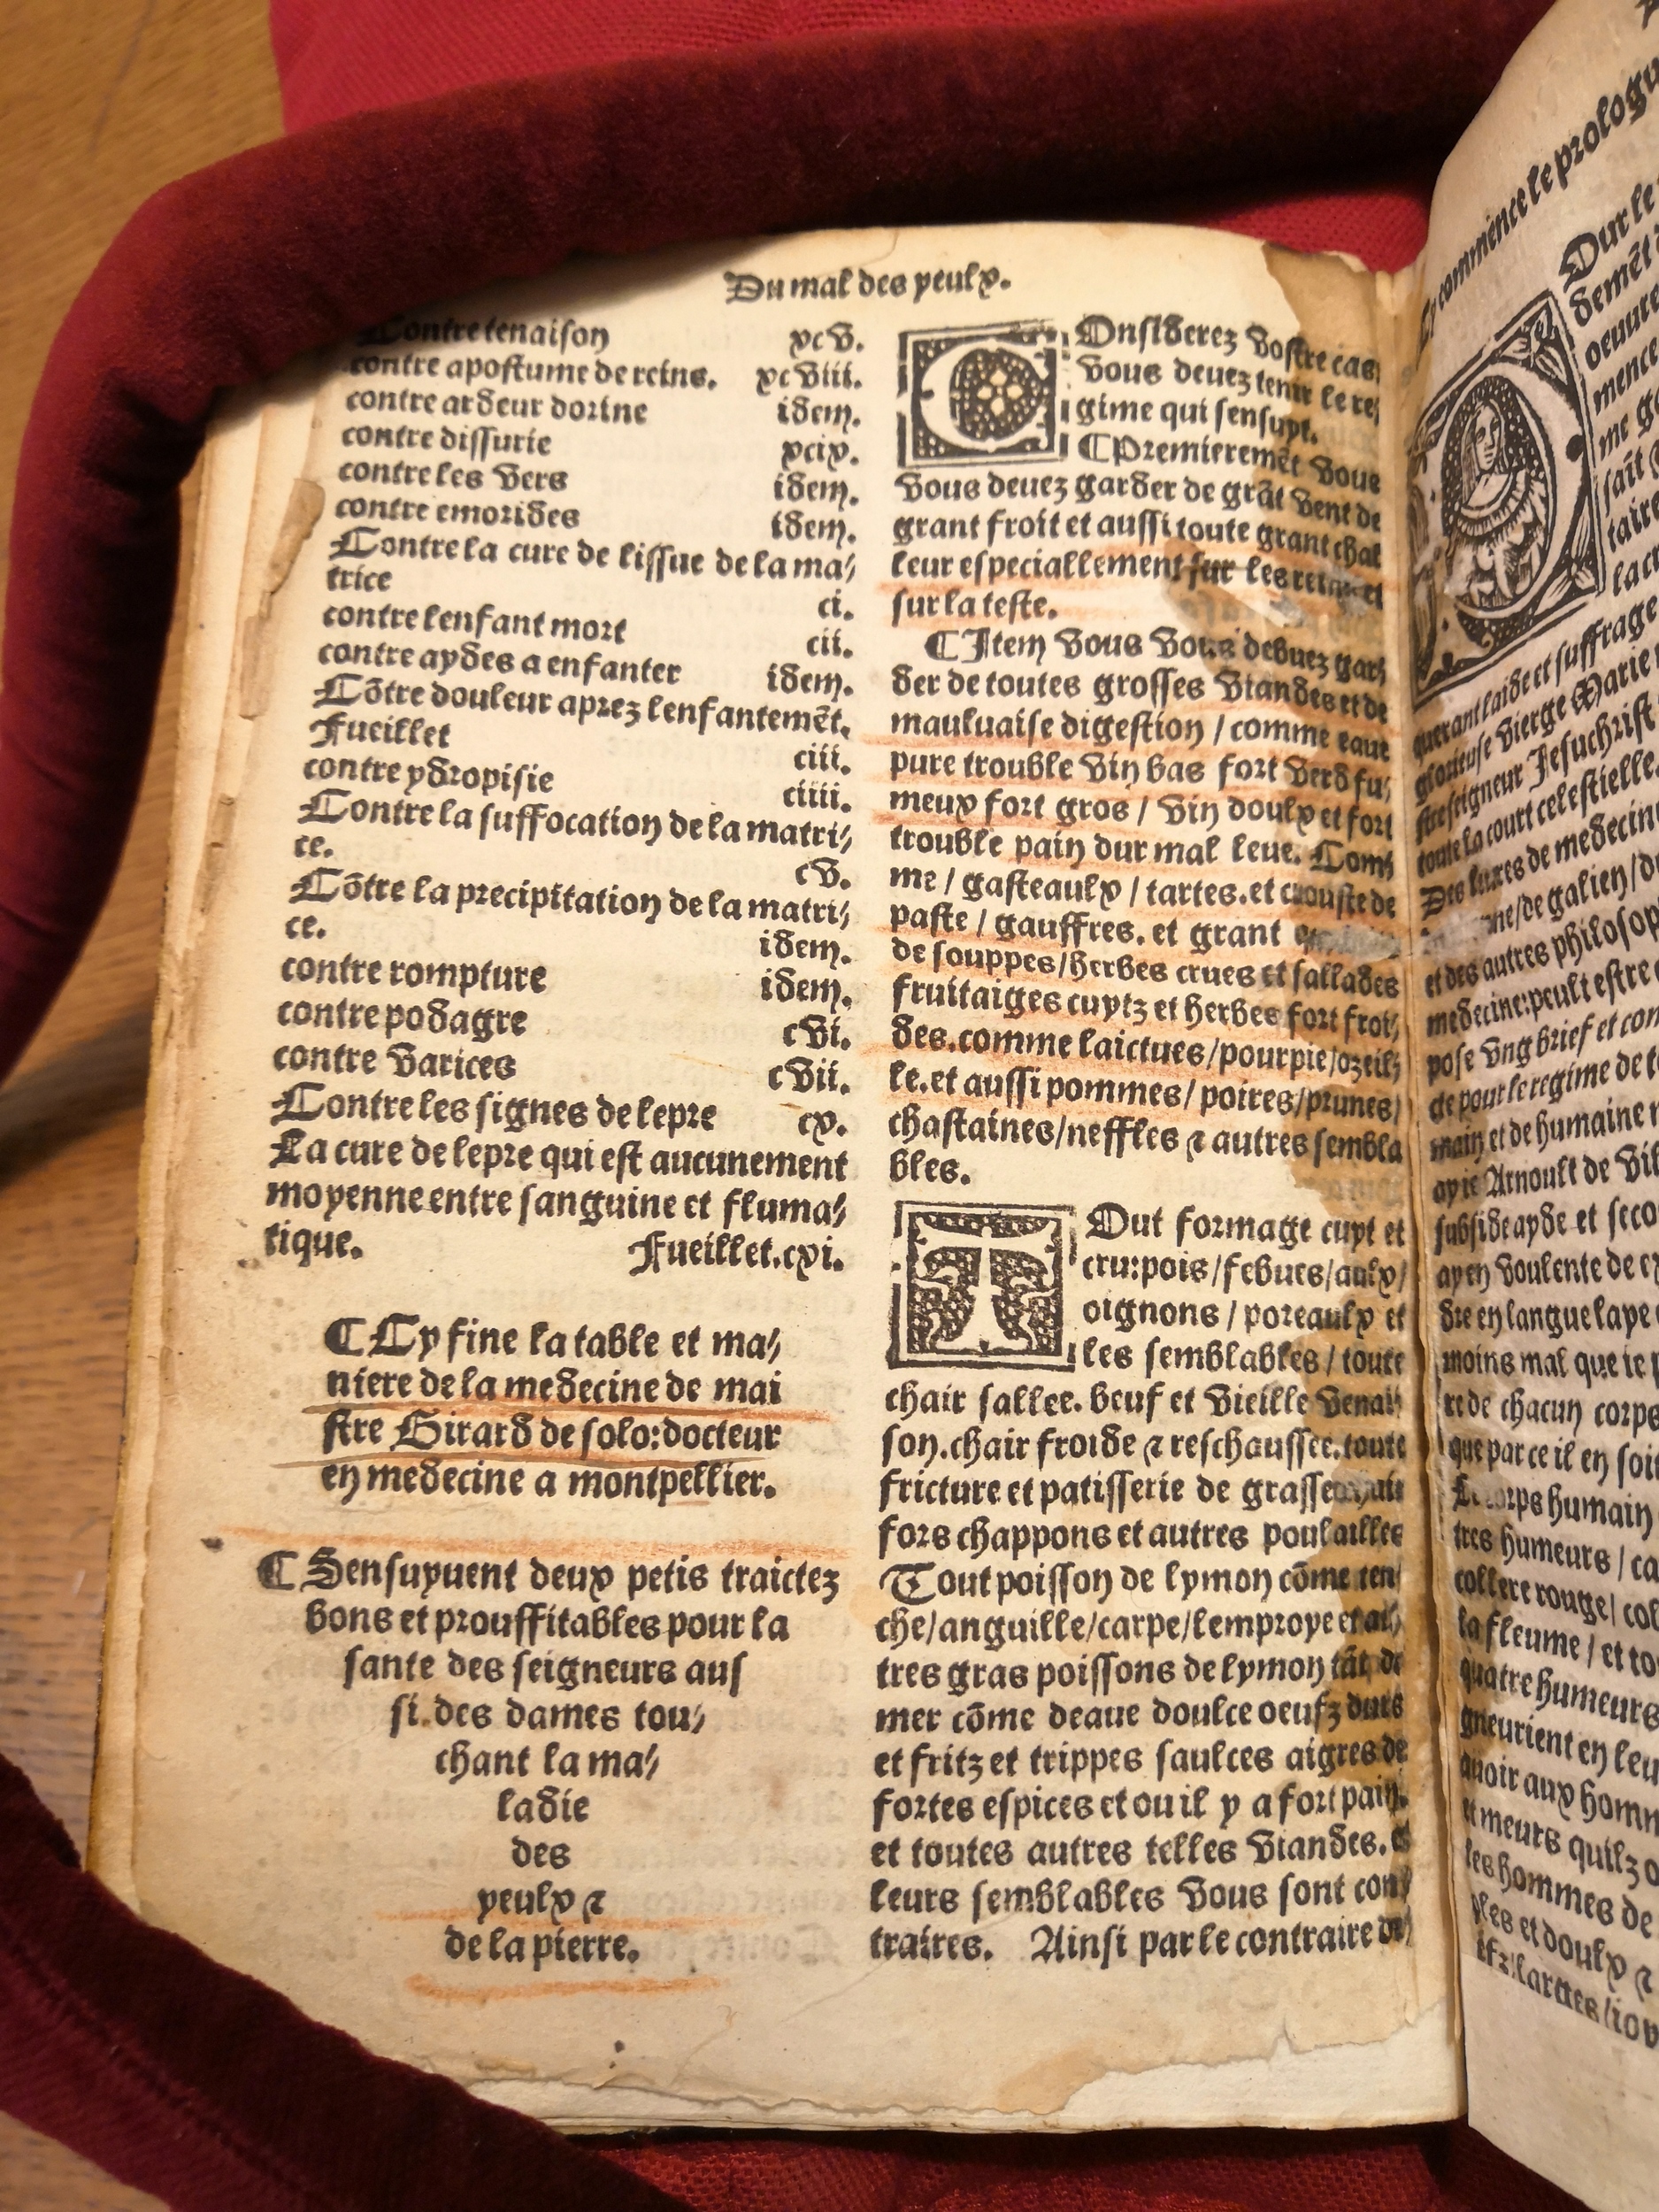 Du mal des yeulx.
Contre tenaison xcv.
contre apostume de reins. xcviii.
contre ardeur dorine idem.
contre dissurie xcix.
contre les vers idem.
contre emorides idem.
Contre la cure de lissue de la ma/
trice ci.
contre lenfant mort cii.
contre aydes a enfanter idem.
Cõtre douleur aprez lenfantemẽt.
Fueillet ciii.
contre ydropisie ciiii.
Contre la suffocation de la matri/
ce. cv.
Cõtre la precipitation de la matri/
ce. idem.
contre rompture idem.
contre podagre cvi.
contre varices cvii.
Contre les signes de lepre cx.
La cure de lepre qui est aucunement
moyenne entre sanguine et fluma/
tique. Fueillet.cxi.
¶ Cy fine la table et ma/
niere de la medecine de mai
stre Girard de solo: docteur
en medecine a montpellier.
¶ Sensuyuent deux petis traictez
bons et prouffitables pour la
sante des seigneurs aus
si des dames tou/
chant la ma/
ladie
des
yeulx ⁊
de la pierre.
COnsiderez vostre cas
vous deuez tenir le re/
gime qui sensuyt.
¶ Premieremẽt vous
vous deuez garder de grãt vent de
grant froit et aussi toute grant chal
leur especiallement sur les reins et
sur la teste.
¶ Item vous vous debuez gar/
der de toutes grosses viandes et de
mauluaise digestion / comme eaue
pure trouble vin bas fort verd fu/
meux fort gros / vin doulx et fort
trouble pain dur mal leue. Com/
me / gasteaulx / tartes. et crouste de
paste / gauffres. et grant
de souppes / herbes crues et sallades
fruitaiges cuytz et herbes fort froi/
des. comme laictues / pourpie / ozeil/
le. et aussi pommes / poires / prunes /
chastaines / neffles ⁊ autres sembla
bles.
TOut formage cuyt et
cru: pois / febues / aulx /
oignons / poreaulx et
les semblables / toute
chair sallee. beuf et vieille venai/
son. chair froide ⁊ reschauffee. toute
fricture et patisserie de grasse
fors chappons et autres poulailles
Tout poisson de lymon cõme ten/
che / anguille / carpe / lemproye et au/
tres gras poissons de lymon tãt de
mer cõme deaue doulce oeufz durs
et fritz et trippes saulces aigres de
fortes espices et ou il y a fort pain.
et toutes autres telles viandes. et
leurs semblables vous sont con/
traires. Ainsi par le contraire de/
Cy commence le prologu
Our le
demẽt
oeuure
mence
me
sait
taire
la
querant laide et suffrage
glorieuse vierge Marie
stre seigneur Jesuchrist
toute la court celestielle.
Des liures de medecin
ne / de galien /
et des autres philosop
medecine: peult estre
pose vng brief et con
de pour le regime de
main et de humaine
ay ie Arnoult de Vil
subside ayde et seco
ay en voulente de
dre en langue laye
moins mal que ie
re de chacun corps
que par ce il en soit
Le corps humain
tres humeurs / ca
collere rouge / col
la fleume / et to
quatre humeurs
gneurient en leu
auoir aux homm
et meurs quilz
les hommes de
et doulx ⁊
larges / ioy